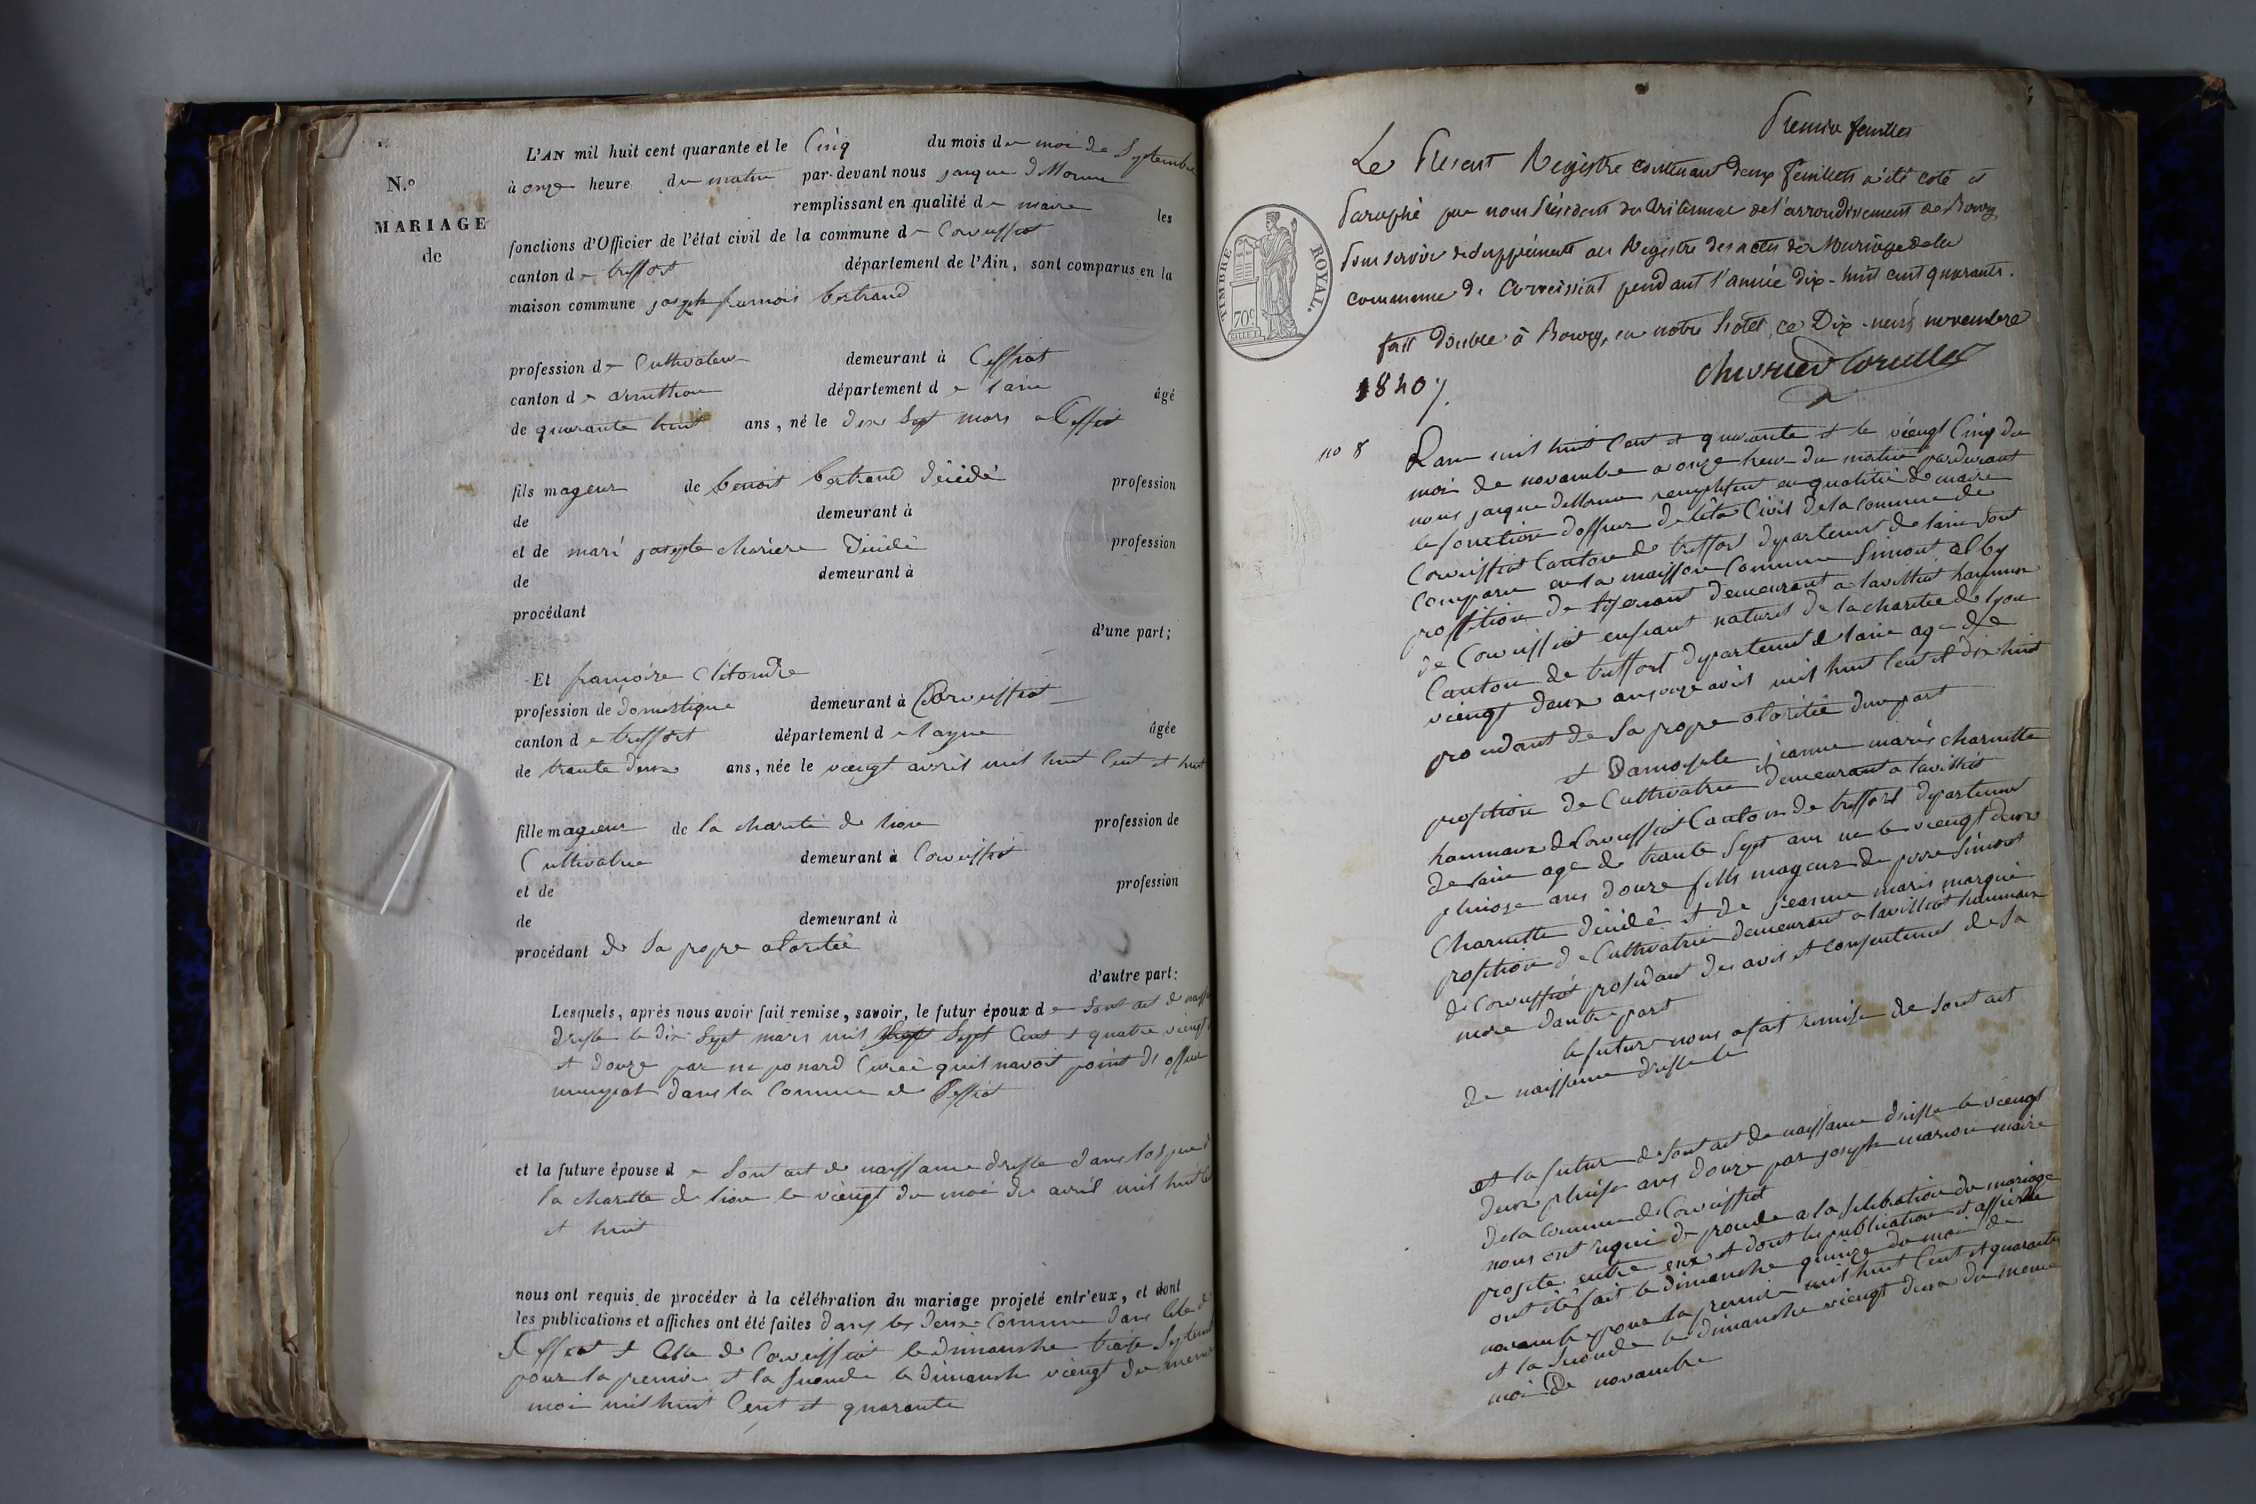 N.º
MARIAGE
de
L'AN mil huit cent quarante et le Cinq du mois de moi de Septembre
à onze heure du matin par-devant nous jaque dMorme
remplissant en qualité de maire les
fonctions d'Officier de l'état civil de la commune d Corveissiat
canton de treffort département de l'Ain, sont comparus en la
maison commune joseph francois bertrand
profession de Cultivateur demeurant à Ceffiat
canton de arinthou département de lain âgé
de quarante huit ans, né le dix Sept mars a Ceffiat
fils mageur de benoit bertrand décédé profession
de demeurant à
et de mari josepte décédé profession
de demeurant à
procédant
d'une part;
Et
profession de domestique demeurant à Corveissiat
canton de treffort département de layne âgée
de trante deux ans, née le viengt avril mil huit Cent et huit
fille mageur de la charité de lion profession de
Cultivatrice demeurant à Corveissiat
et de profession
de demeurant à
procédant de Sa propre otorité
d'autre part:
Lesquels, après nous avoir fait remise, savoir, le futur époux de Sont act de
dresse le dix Sept mars mil Sept Cent et quatre viengt
et douze par ponard Curée quil navoit point di
dans la Commune de Ceffiat
et la future épouse de Sont act de naissance dresse dans
la charitte de lion le viengt du moi de avril mil huit
et huit
nous ont requis de procéder à la célébration du mariage projeté entr'eux, et dont
les publications et affiches ont été faites dans les deux Commune dans Cele de
Ceffiat et Cele de Corveissiat le dimanche traise Septembre
pour la premie et la Seconde le dimanche viengt du meme
moi mil huit Cent et quarante
Premier feuillet
Le Présent Registre contenant deux feuillets a été coté et
Paraphé par nous Président du tribunal de l'arrondissement de Bourg
Pour servir de Supplément au Registre des actes de Mariage de la
commune de Corveissiat pendant l'année dix-huit cent quarante.
fait double à Bourg, en notre hotel, ce Dix-neuf novembre
1840
TIMBRE ROYAL.
70c
no 8
Lan mil huit Cent et quarante et le viengt Cinq du
moi de novambre a onze heur du matin pardevant
nous jaque dellorme remplisent en qualitié de maire
le fonction dofficier de létat Civil de la commune de
Corveissiat Canton de treffort departement de lain Sont
comparu en la maisson Commune Simont alby
profession de demeurant a lavillat hammau
de Corveissiat enfant naturel de la charitée de lyon
Canton de treffort departement de lain age de
viengt deux ans avril mil huit Cent et dix huit
procedant de Sa propre otoritié dune part
et Damoiselle jeanne marie charnette
profition de Cultivatrice demeurant a lavillat
hammaux de Corveissiat Canton de treffort departement
de lain age de trante Sept ans ne le viengt deux
pluviose ans douze fille mageur de piere Simont
Charnette décédé et de jeanne marie
profition de Cultivatrice demeurant a lavillat hammaux
de Corveissiat prosedant des avis et consentement de Sa
mere dautre part
le future nous a fait remise de Sont act
de naissance dresse le
et la future de Sont act de naissance dresse le viengt
deux pluvise ans douze par joseph marion maire
de la Commune de Corveissiat
nous ont requi de procede a la selebration du mariage
projete entre eux et dont les publication et affiche
ont été fait le dimanche quinze du moi de
novambre pour la premie mil huit Cent et quarante
et la Seconde le dimanche viengt deux du meme
moi de novambre